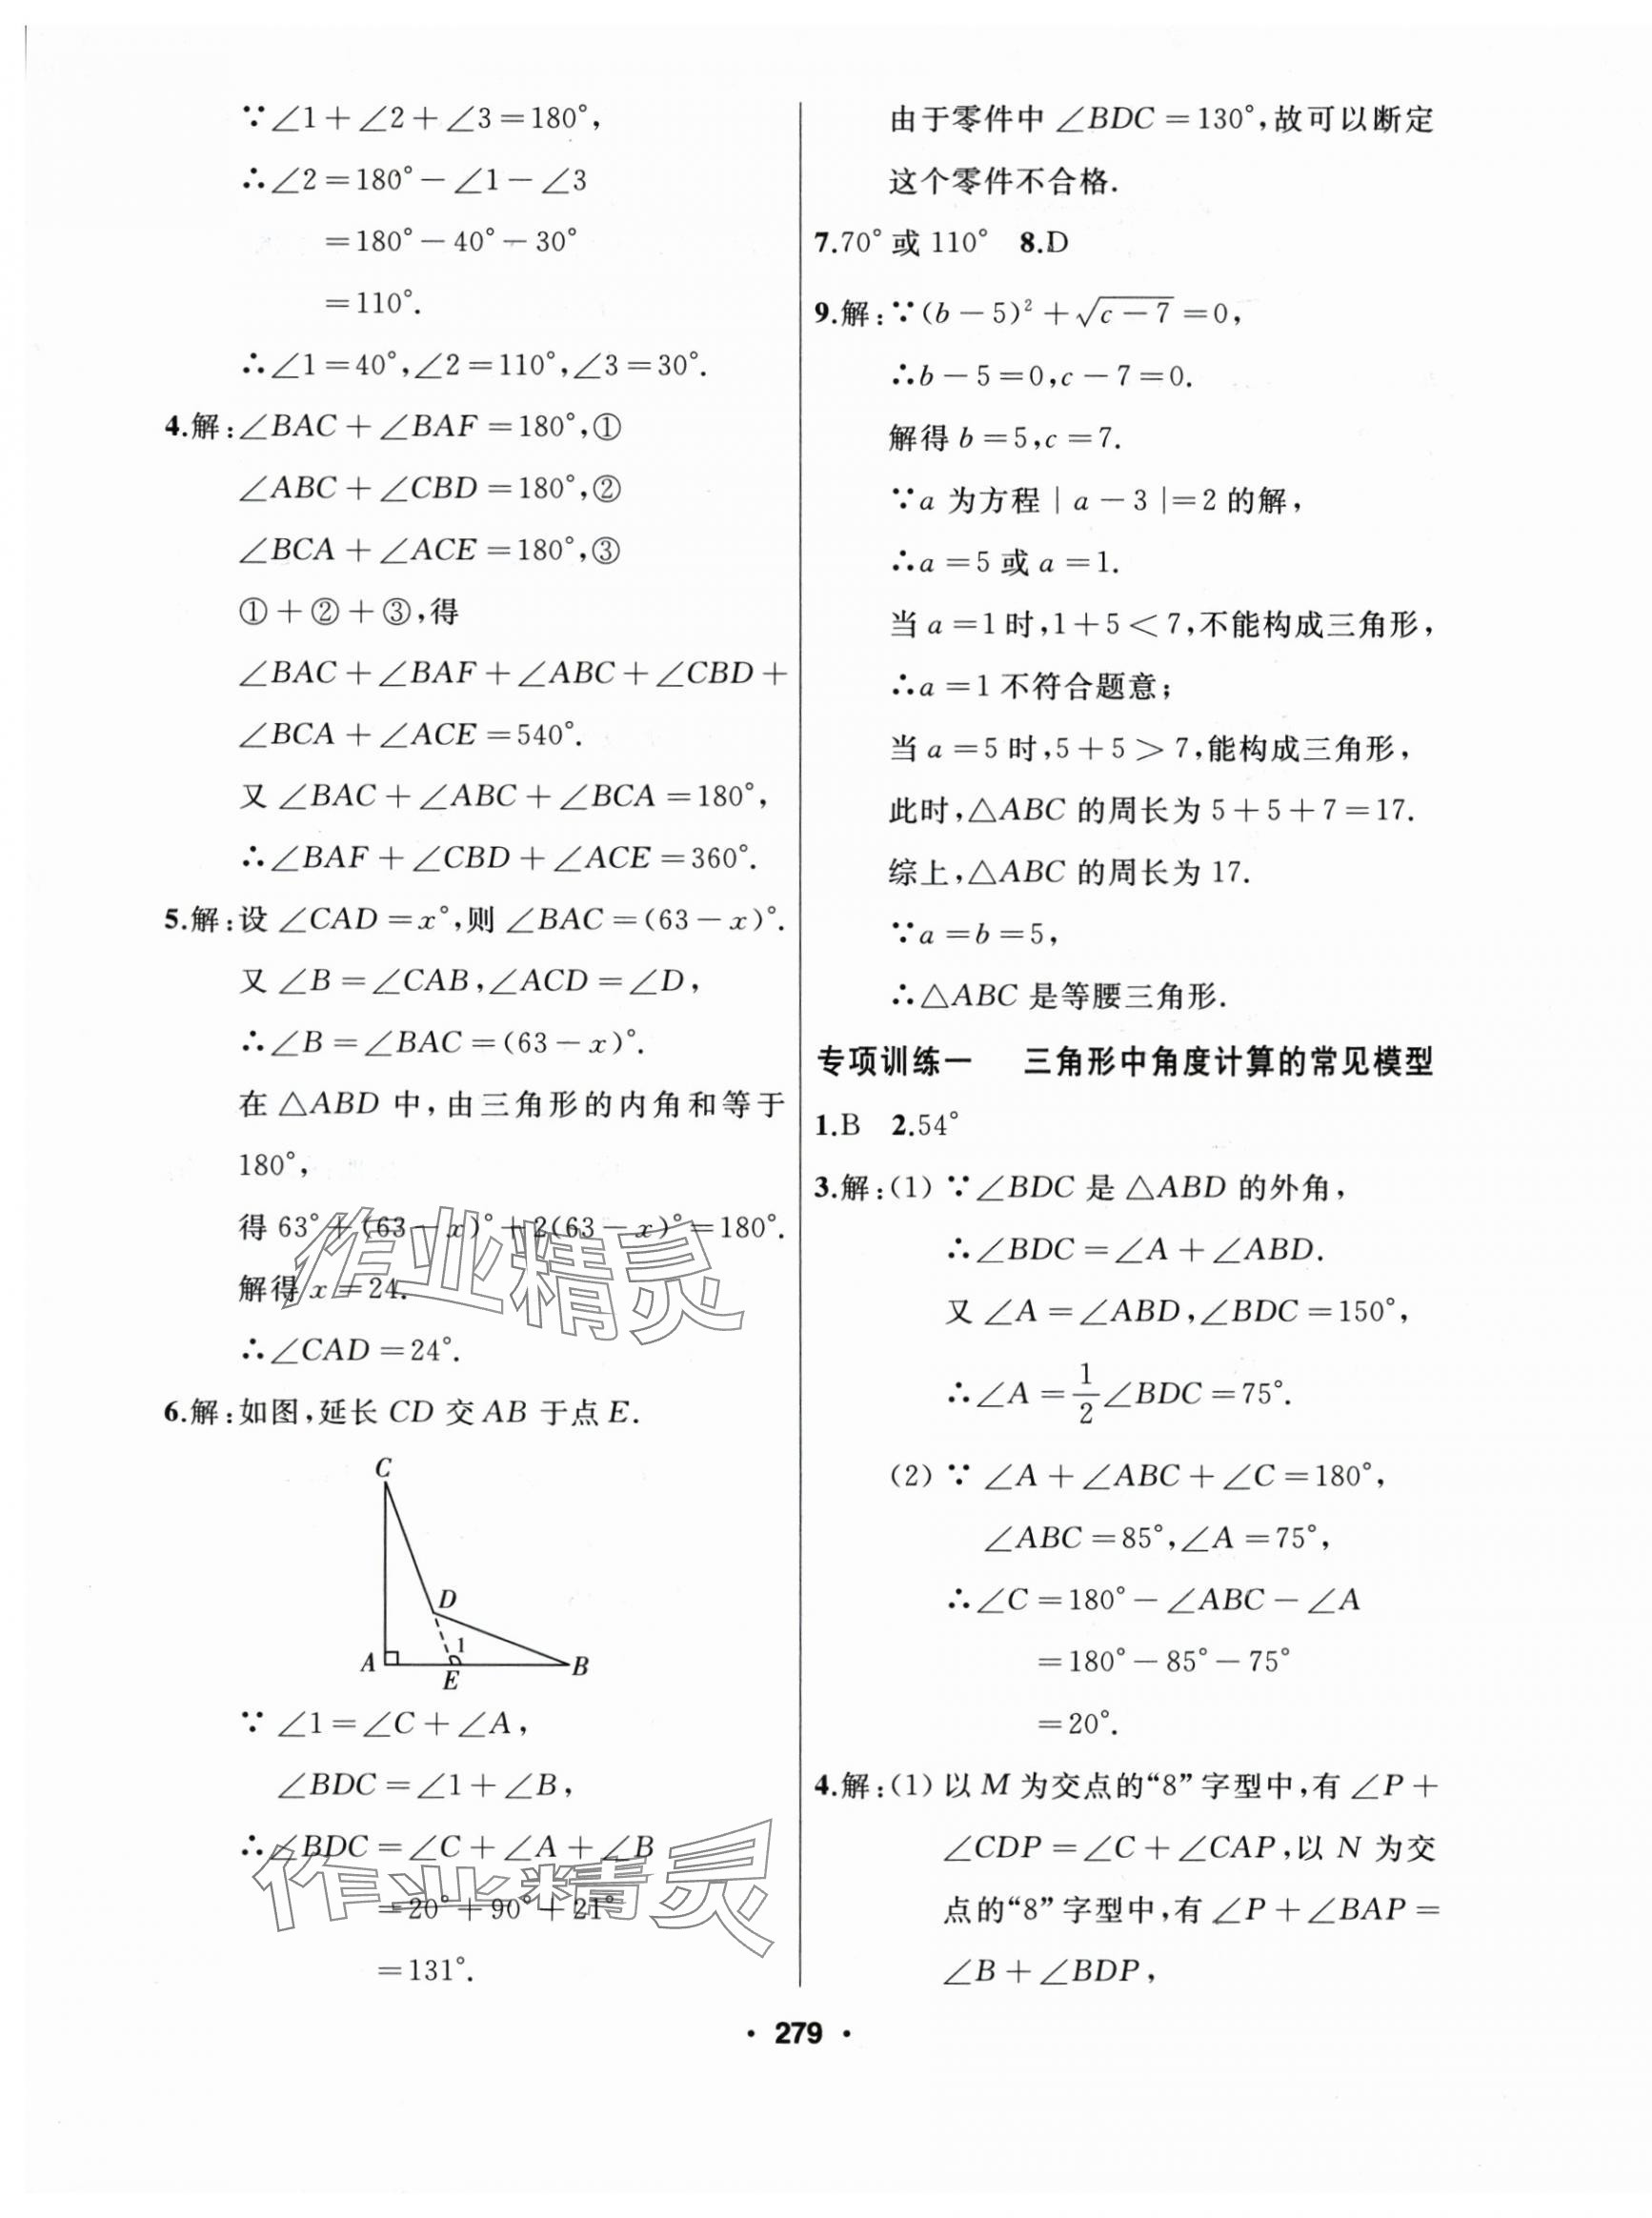 ∵∠1+∠2+∠3=180°,
∴∠2=180°-∠1-∠3
=180°-40°-30°
=110°.
∴∠1=40°,∠2=110°,∠3=30°.
4.解:∠BAC+∠BAF=180°,①
∠ABC+∠CBD=180°,②
∠BCA+∠ACE=180°,③
①+②+③,得
∠BAC+∠BAF+∠ABC+∠CBD+
∠BCA+∠ACE=540°.
又∠BAC+∠ABC+∠BCA=180°,
∴∠BAF+∠CBD+∠ACE=360°.
5.解:设∠CAD=x°,则∠BAC=(63-x)°.
又∠B=∠CAB,∠ACD=∠D,
∴∠B=∠BAC=(63-x)°.
在△ABD中,由三角形的内角和等于
180°,
得63°+(63-x)°+2(63-x)°=180°.
解得x=24.
∴∠CAD=24°.
6.解:如图,延长CD交AB于点E.
C
D
1
A
E
B
∵∠1=∠C+∠A,
∠BDC=∠1+∠B,
∴∠BDC=∠C+∠A+∠B
=20°+90°+21°
=131°.
由于零件中∠BDC=130°,故可以断定
这个零件不合格.
7.70°或110° 8.D
9.解:∵(b-5)²+√(c-7)=0,
∴b-5=0,c-7=0.
解得b=5,c=7.
∵a为方程|a-3|=2的解,
∴a=5或a=1.
当a=1时,1+5<7,不能构成三角形,
∴a=1不符合题意;
当a=5时,5+5>7,能构成三角形,
此时,△ABC的周长为5+5+7=17.
综上,△ABC的周长为17.
∵a=b=5,
∴△ABC是等腰三角形.
专项训练一 三角形中角度计算的常见模型
1.B 2.54°
3.解:(1)∵∠BDC是△ABD的外角,
∴∠BDC=∠A+∠ABD.
又∠A=∠ABD,∠BDC=150°,
∴∠A=1/2∠BDC=75°.
(2)∵∠A+∠ABC+∠C=180°,
∠ABC=85°,∠A=75°,
∴∠C=180°-∠ABC-∠A
=180°-85°-75°
=20°.
4.解:(1)以M为交点的“8”字型中,有∠P+
∠CDP=∠C+∠CAP,以N为交
点的“8”字型中,有∠P+∠BAP=
∠B+∠BDP,
作业精灵
作业精灵
· 279 ·